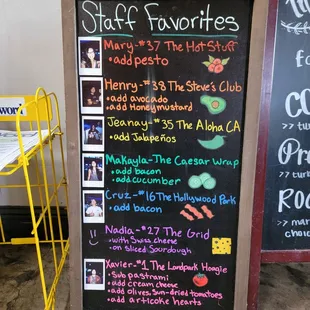 Staff Favorites
Mary-#37 The Hot Stuff
•add pesto
Henry-#38 The Steve's Club
•add avocado
•add Honeymustard
Jeanay-#35 The Aloha CA
•add Jalapeños
Makayla-The Caesar Wrap
•add bacon
•add cucumber
Cruz-#16 The Hollywood Park
•add bacon
Nadia-#27 The Grid
•with Swiss cheese
•on sliced Sourdough
Xavier-#1 The Landpark Hoagie
•Sub pastrami
•add cream cheese
•add olives, sun-dried tomatoes
•add artichoke hearts